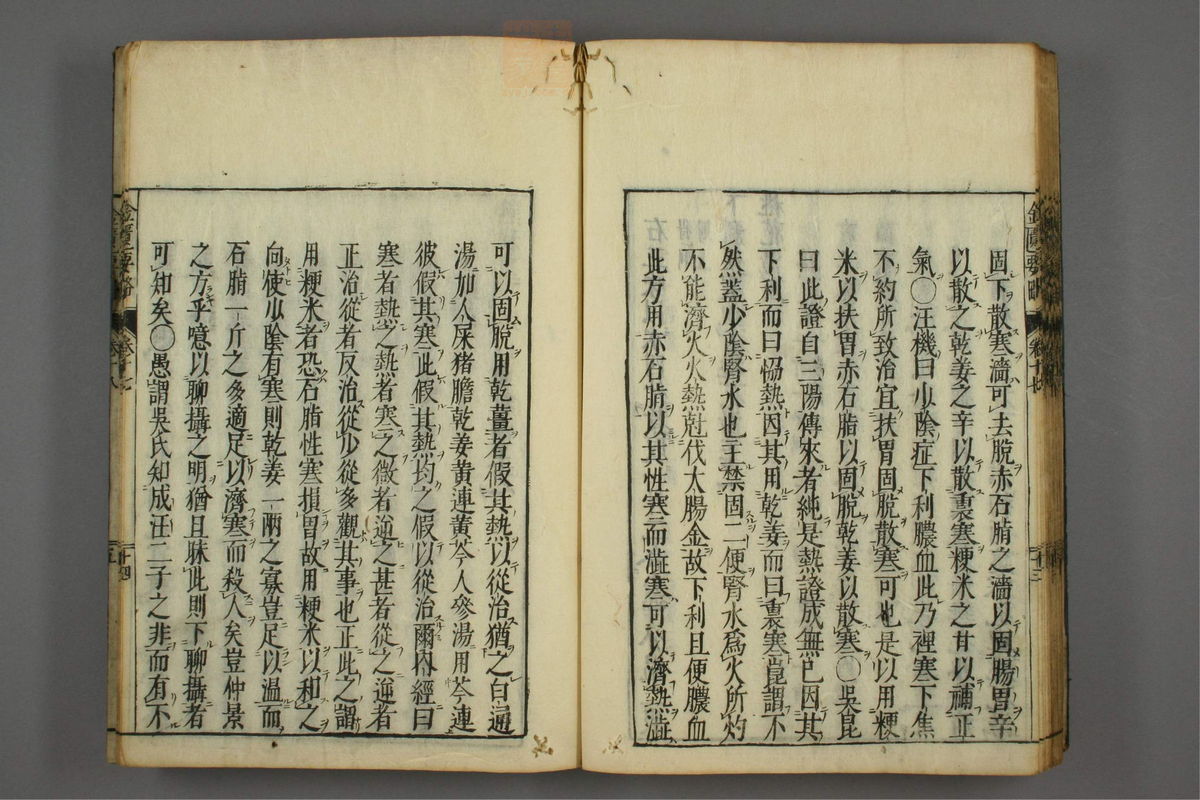 固下散寒濇可去脫赤石脂之濇以固腸胃辛
以散之乾姜之辛以散裏寒粳米之甘以補正
氣○汪機曰少陰症下利膿血此乃裡寒下焦
不約所致治宜扶胃固脫散寒可也是以用粳
米以扶胃赤石脂以固脫乾姜以散寒○吳昆
曰此證自三陽傳來者純是熱證成無已因其
下利而曰恊熱因其用乾姜而曰裏寒崑謂不
然蓋少陰腎水也主禁固二便腎水爲火所灼
不能濟火火熱尅伐大腸金故下利且便膿血
此方用赤石脂以其性寒而澁寒可以濟熱澁
可以固脫用乾薑者假其熱以從治猶之白通
湯加人尿猪膽乾姜黄連黄芩人參湯用芩連
彼假其寒此假其熱均之假以從治爾內經曰
寒者熱之熱者寒之微者逆之甚者從之逆者
正治從者反治從少從多觀其事也正此之謂
用粳米者恐石脂性寒損胃故用粳米以和之
向使少陰有寒則乾姜一兩之寡豈足以温而
石脂一斤之多適足以濟寒而殺人矣豈仲景
之方乎噫以聊攝之明猶且昧此則下聊攝者
可知矣○愚謂吳氏知成汪二子之非而有不